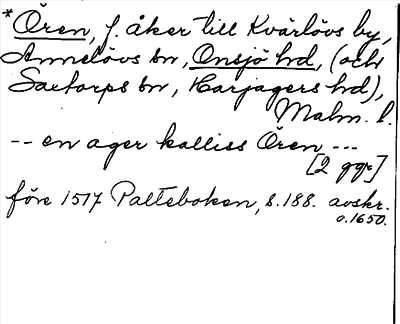 * Ören, f. åker till Kvärlövs by,
Annelövs sn, Onsjö hd, (och
Saxtorps sn, Harjagers hd),
Malm. l.
-- en ager kalliss Ören ---
[2 ggr]
före 1517 Palteboken, s. 188. avskr.
o. 1650.